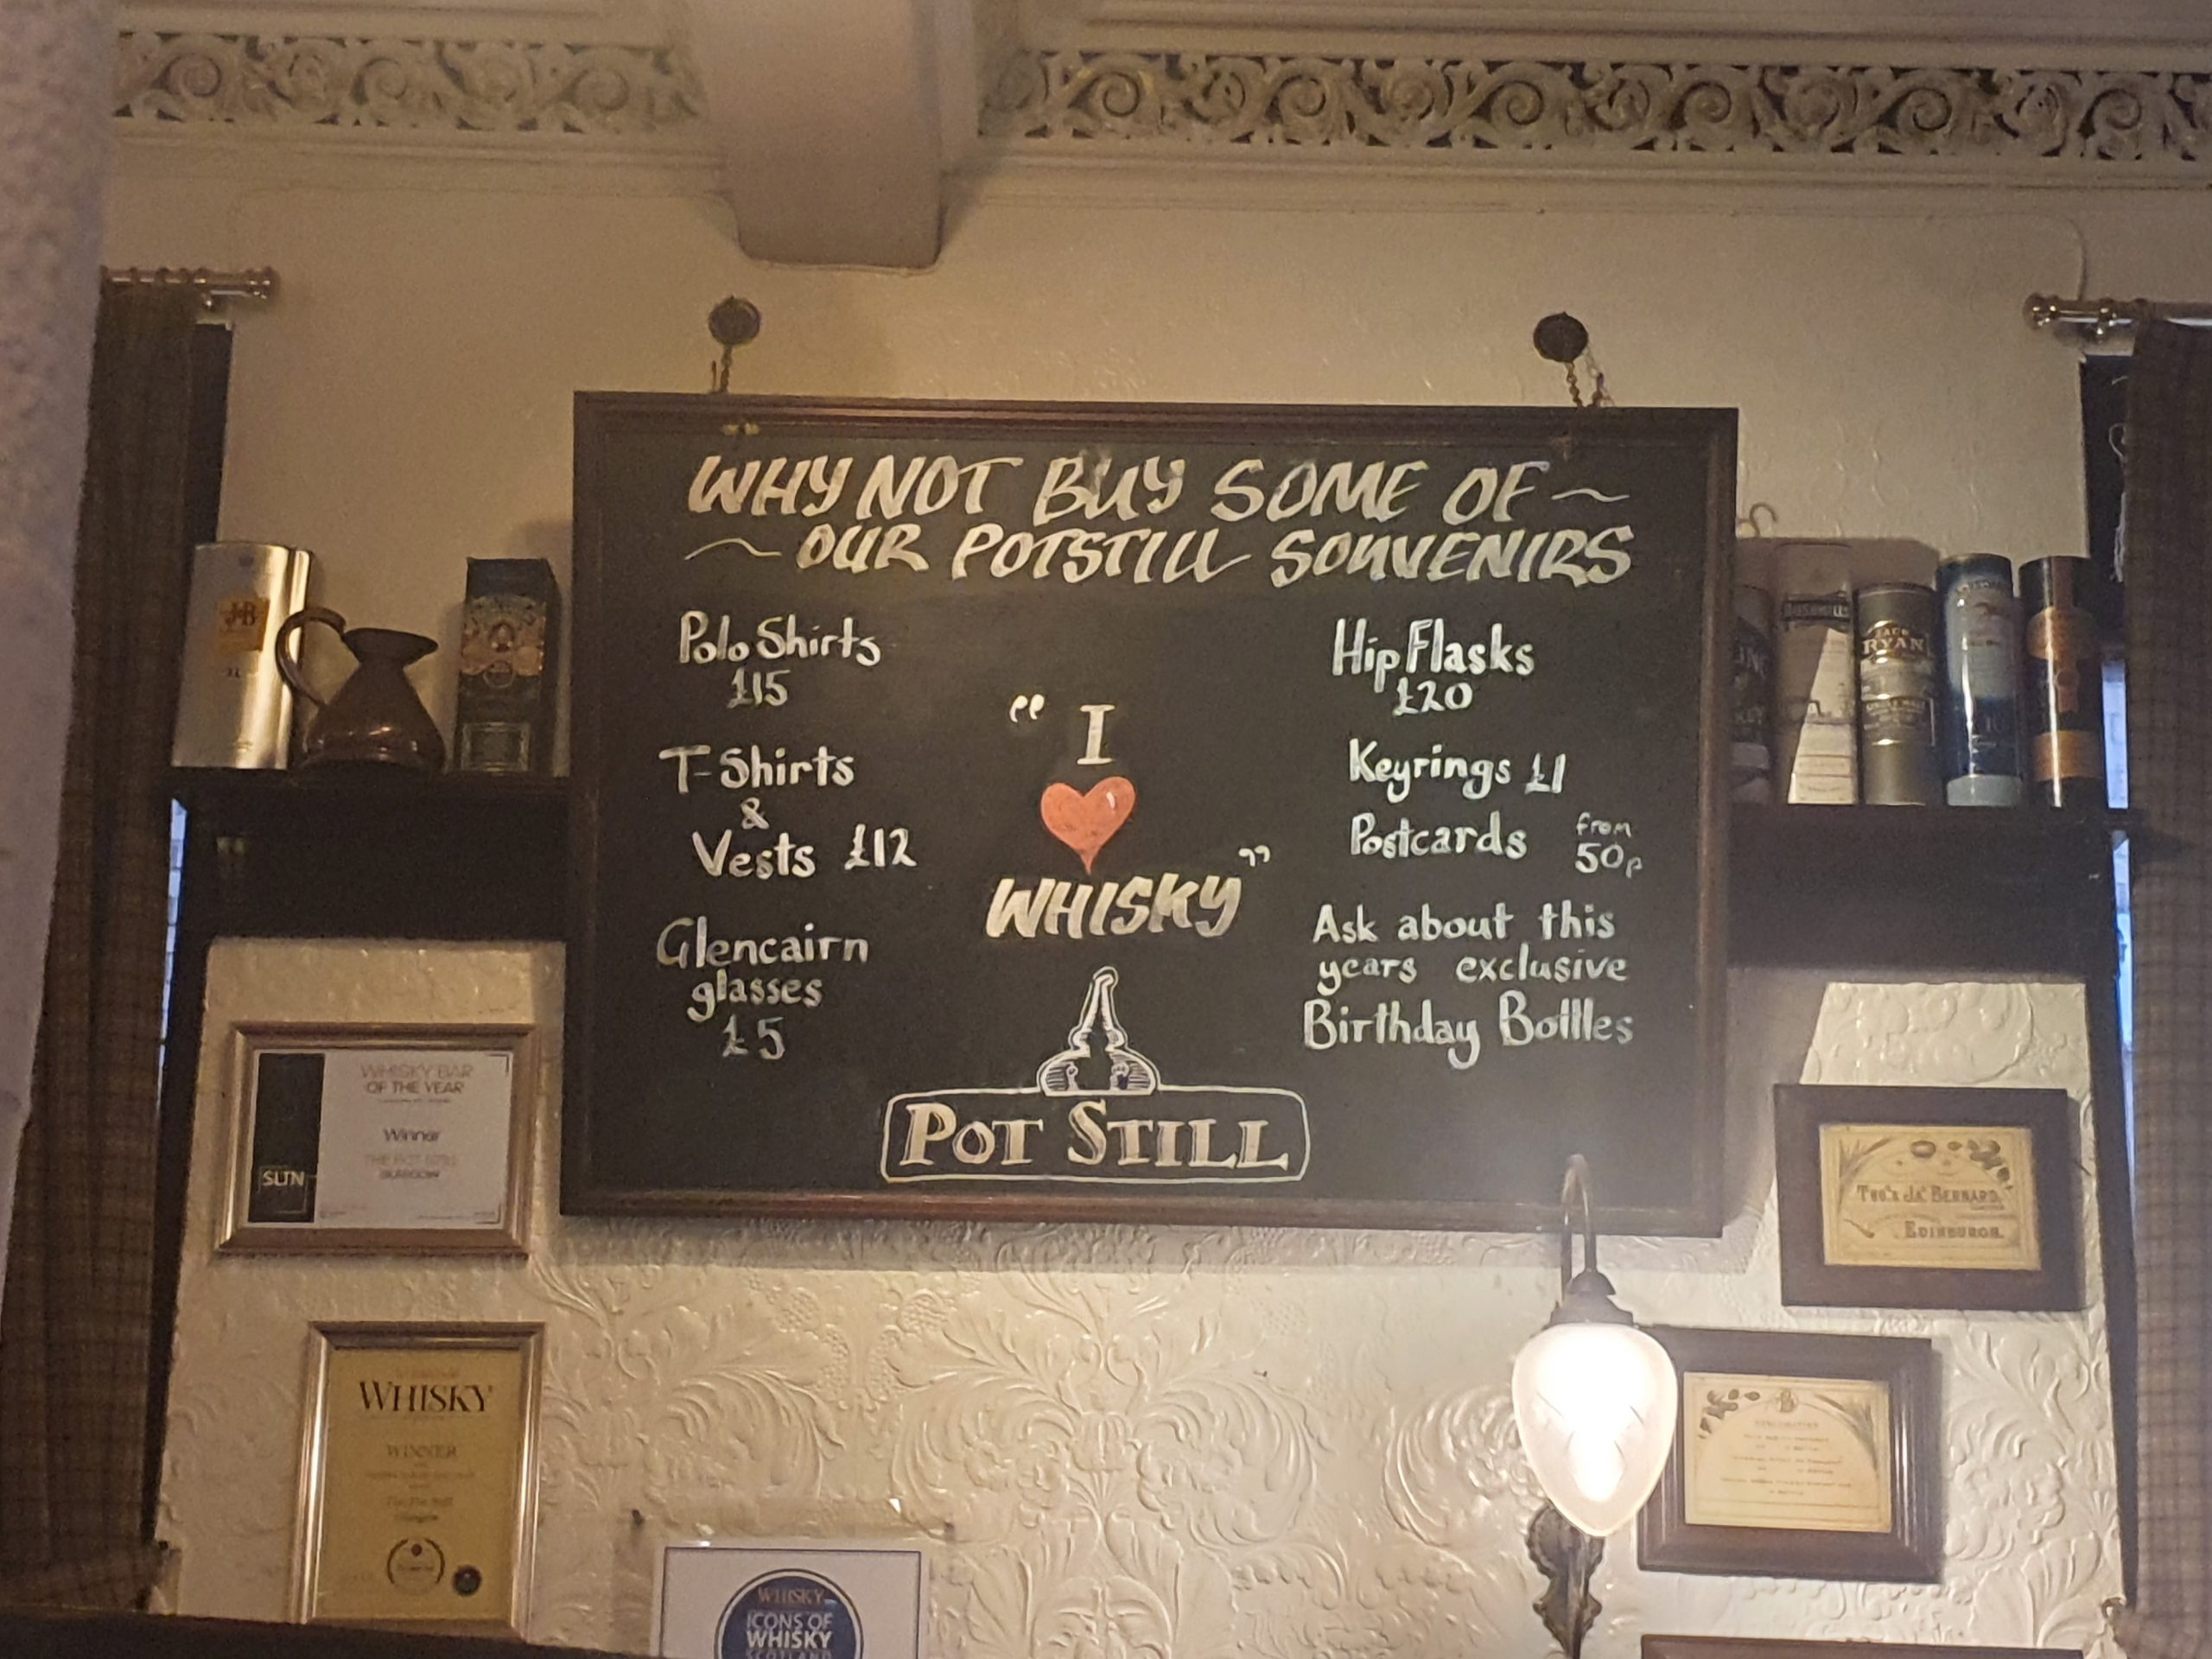 WHY NOT BUY SOME OF ~
~ OUR POTSTILL SOUVENIRS
Polo Shirts
£15
T-Shirts
&
Vests £12
Glencairn
glasses
£5
“ I
WHISKY ”
POT STILL
Hip Flasks
£20
Keyrings £1
Postcards from
50p
Ask about this
years exclusive
Birthday Bottles
J&B
BUSHMILLS
JACK
RYAN
10
WHISKY BAR
OF THE YEAR
Winner
THE POT STILL
GLASGOW
SLTN
WHISKY
WINNER
The Pot Still
Glasgow
WHISKY
ICONS OF
WHISKY
SCOTLAND
THOS. & JAS. BERNARD,
EDINBURGH.